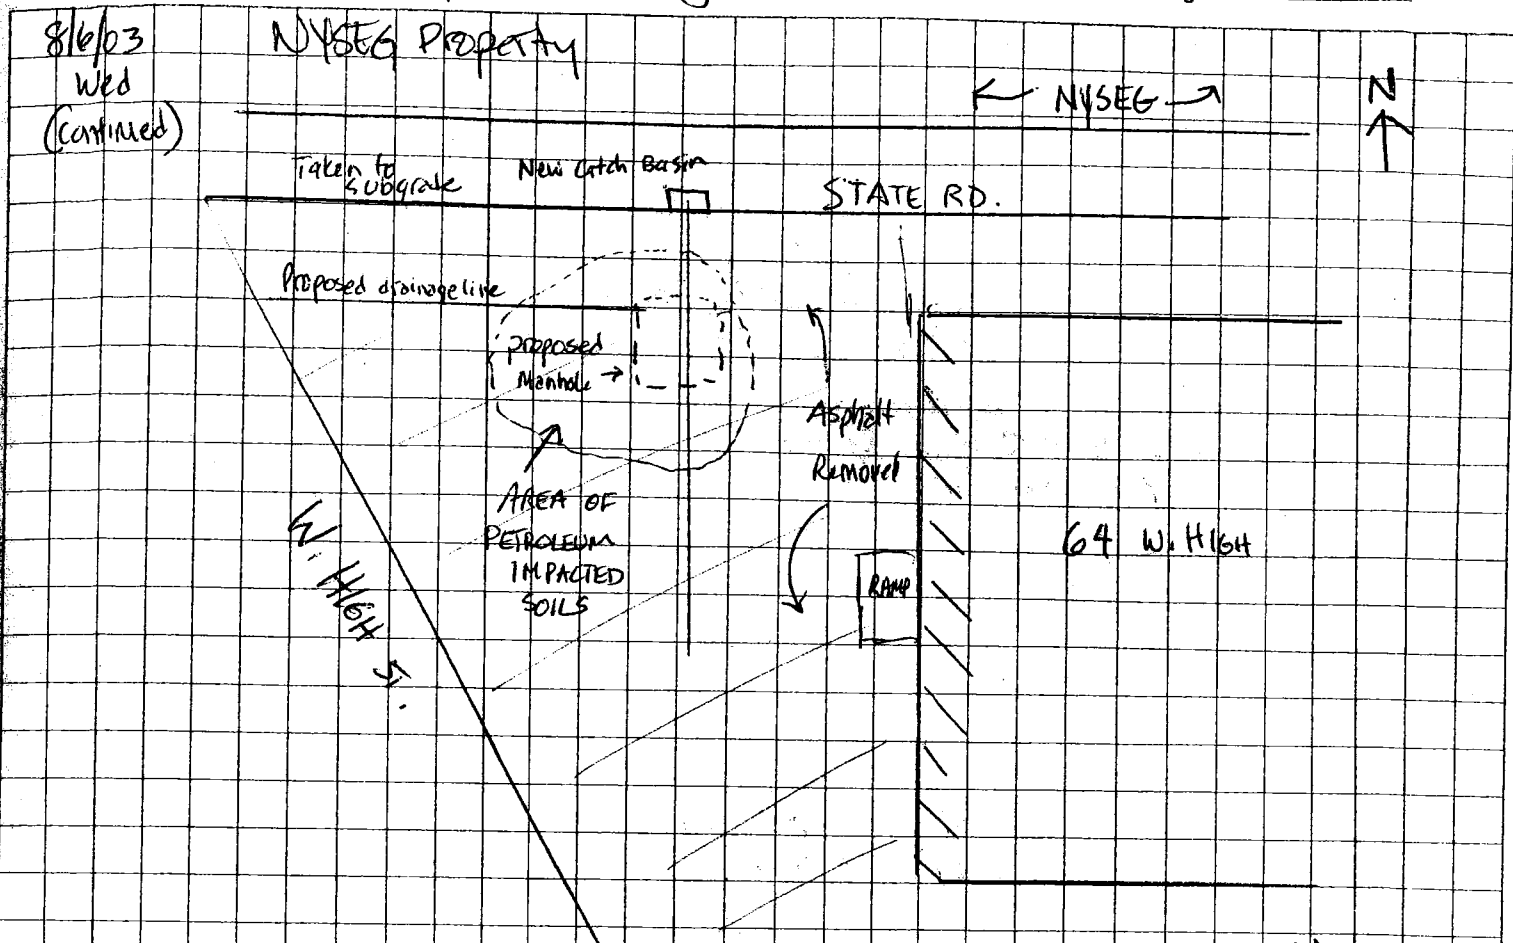 8/6/03
Wed
(continued)
NYSEG Property
← NYSEG →
N
Taken to
subgrade
New Catch Basin
STATE RD.
Proposed drainage line
proposed
Manhole →
Asphalt
Removal
AREA OF
PETROLEUM
IMPACTED
SOILS
RAMP
64 W. HIGH
W. HIGH St.